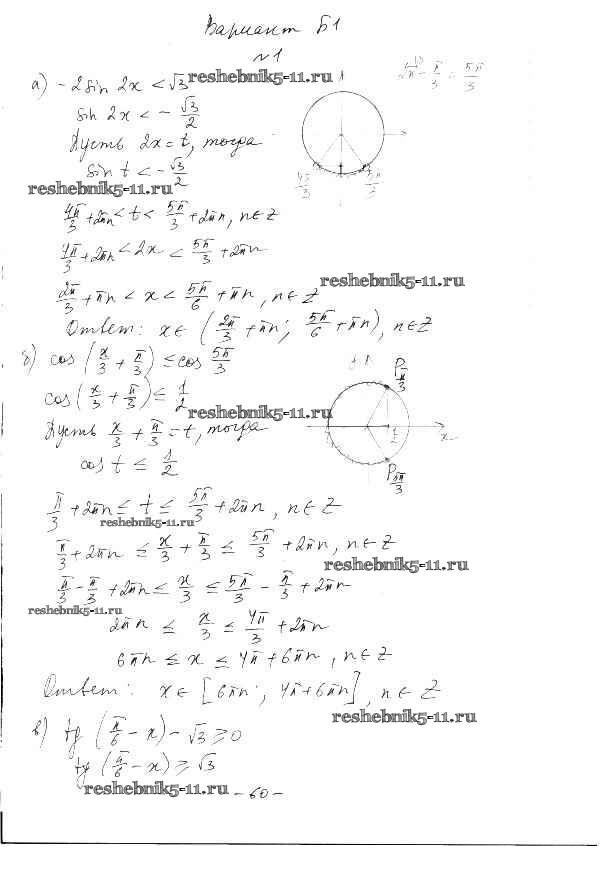 Вариант Б1
№1
а) -2sin 2x < √3
reshebnik5-11.ru
π/3 = 5π/3
sin 2x < -√3/2
Пусть 2x = t, тогда
sin t < -√3/2
reshebnik5-11.ru
4π/3 5π/3
4π/3 + 2πn < t < 5π/3 + 2πn, n∈Z
4π/3 + 2πn < 2x < 5π/3 + 2πn
reshebnik5-11.ru
2π/3 + πn < x < 5π/6 + πn, n∈Z
Ответ: x∈ (2π/3 + πn; 5π/6 + πn), n∈Z
б) cos (x/3 + π/3) ≤ cos 5π/3
P π/3
cos(x/3 + π/3) ≤ 1/2
reshebnik5-11.ru
Пусть x/3 + π/3 = t, тогда
x
cos t ≤ 1/2
P 5π/3
π/3 + 2πn ≤ t ≤ 5π/3 + 2πn, n∈Z
reshebnik5-11.ru
π/3 + 2πn ≤ x/3 + π/3 ≤ 5π/3 + 2πn, n∈Z
reshebnik5-11.ru
π/3 - π/3 + 2πn ≤ x/3 ≤ 5π/3 - π/3 + 2πn
reshebnik5-11.ru
2πn ≤ x/3 ≤ 4π/3 + 2πn
6πn ≤ x ≤ 4π + 6πn, n∈Z
Ответ: x∈ [6πn; 4π + 6πn], n∈Z
reshebnik5-11.ru
в) tg (π/6 - x) - √3 ≥ 0
tg (π/6 - x) ≥ √3
reshebnik5-11.ru
- 60 -